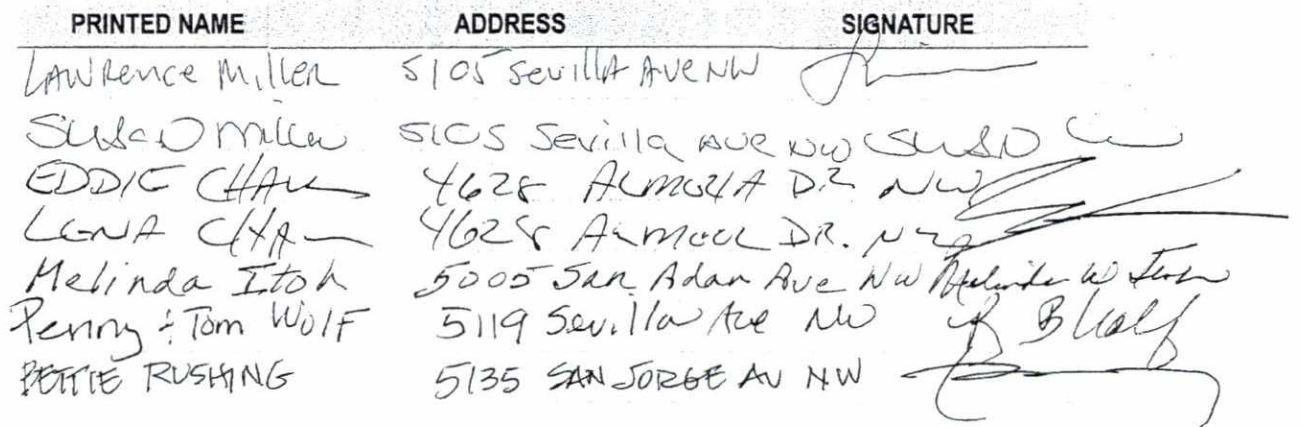 PRINTED NAME ADDRESS SIGNATURE
LAWRence Miller 5105 Sevilla Ave NW
Susan Miller 5105 Sevilla AVE NW
EDDIE 4628 DR NW
LENA 4628 DR. NW
Melinda Itoh 5005 San Adan Ave NW Melinda W Itoh
Penny & Tom Wolf 5119 Sevilla Ave NW P B Wolf
BETTIE RUSHING 5135 SAN JORGE AV NW